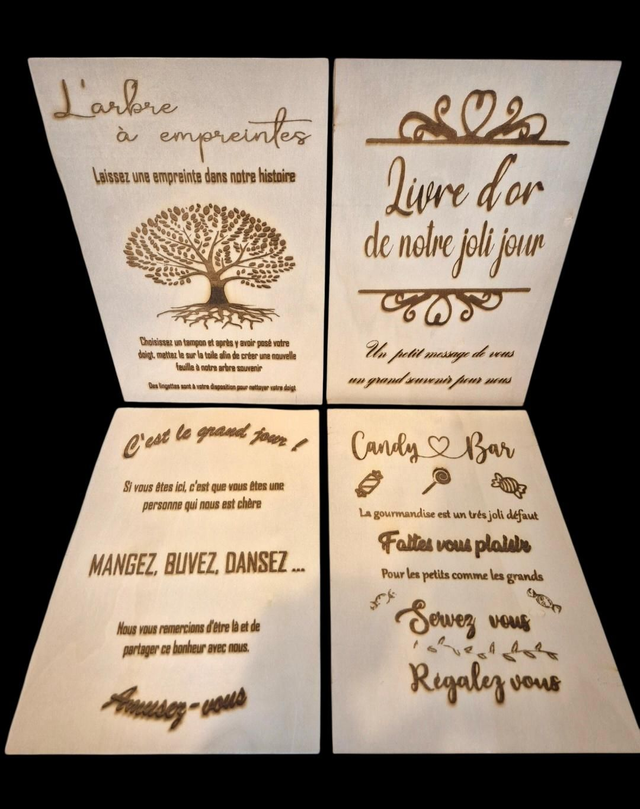 L'arbre
à empreintes
Laissez une empreinte dans notre histoire
Choisissez un tampon et après y avoir posé votre
doigt, mettez le sur la toile afin de créer une nouvelle
feuille à notre arbre souvenir
Des lingettes sont à votre disposition pour nettoyer votre doigt
Livre d'or
de notre joli jour
Un petit message de vous
un grand souvenir pour nous
C'est le grand jour !
Si vous êtes ici, c'est que vous êtes une
personne qui nous est chère
MANGEZ, BUVEZ, DANSEZ ...
Nous vous remercions d'être là et de
partager ce bonheur avec nous.
Amusez-vous
Candy Bar
La gourmandise est un trés joli défaut
Faites vous plaisir
Pour les petits comme les grands
Servez vous
Régalez vous